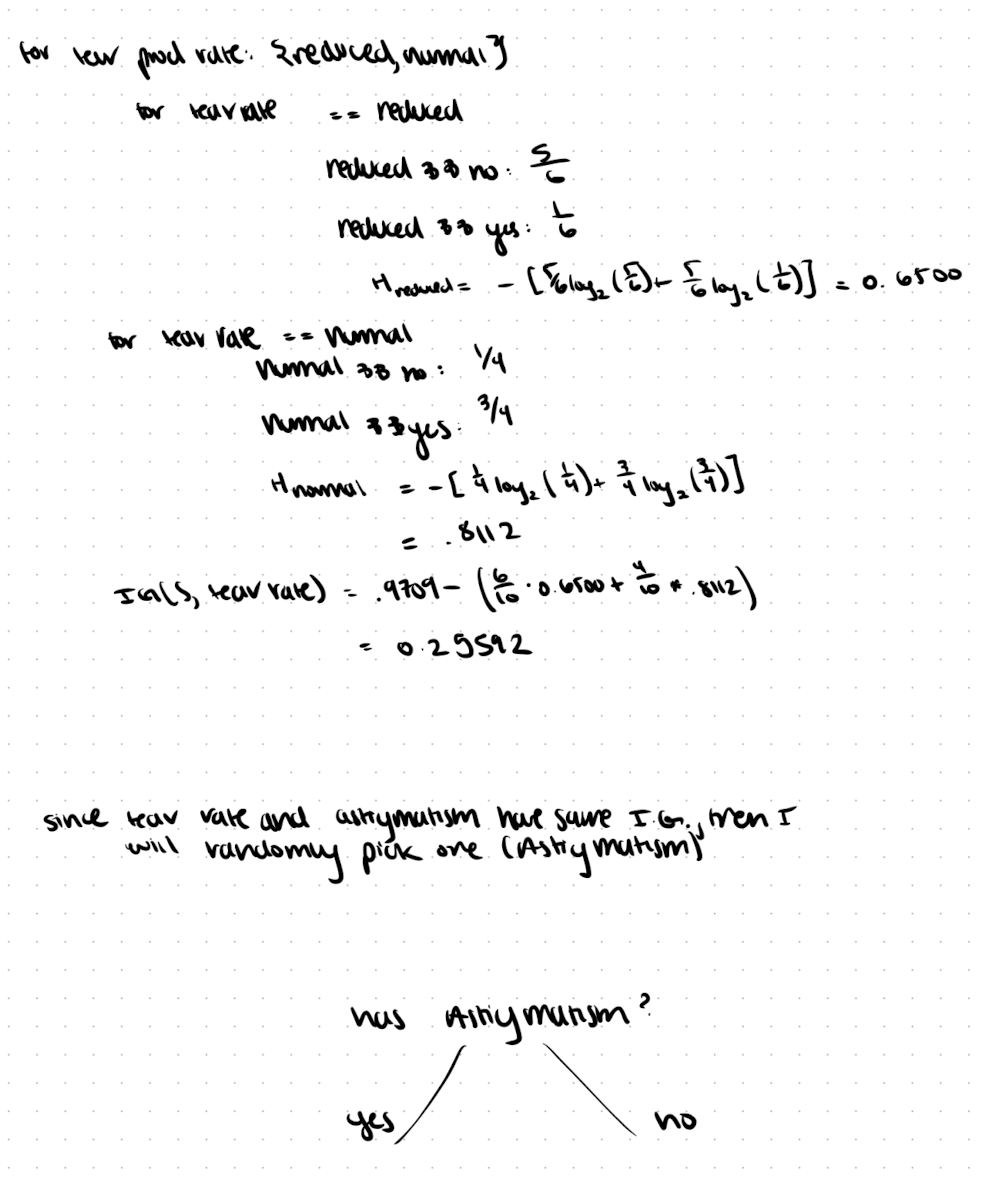 for tear prod rate: {reduced, normal}
for tear rate == reduced
reduced && no: 5/6
reduced && yes: 1/6
H reduced = - [5/6 log₂ (5/6) + 5/6 log₂ (1/6)] = 0.6500
for tear rate == normal
normal && no: 1/4
normal && yes: 3/4
H normal = - [1/4 log₂ (1/4) + 3/4 log₂ (3/4)]
= .8112
IG(S, tear rate) = .9709 - (6/10 · 0.6500 + 4/10 * .8112)
= 0.25592
since tear rate and astigmatism have same I.G., then I
will randomly pick one (Astigmatism)
has Astigmatism?
yes no